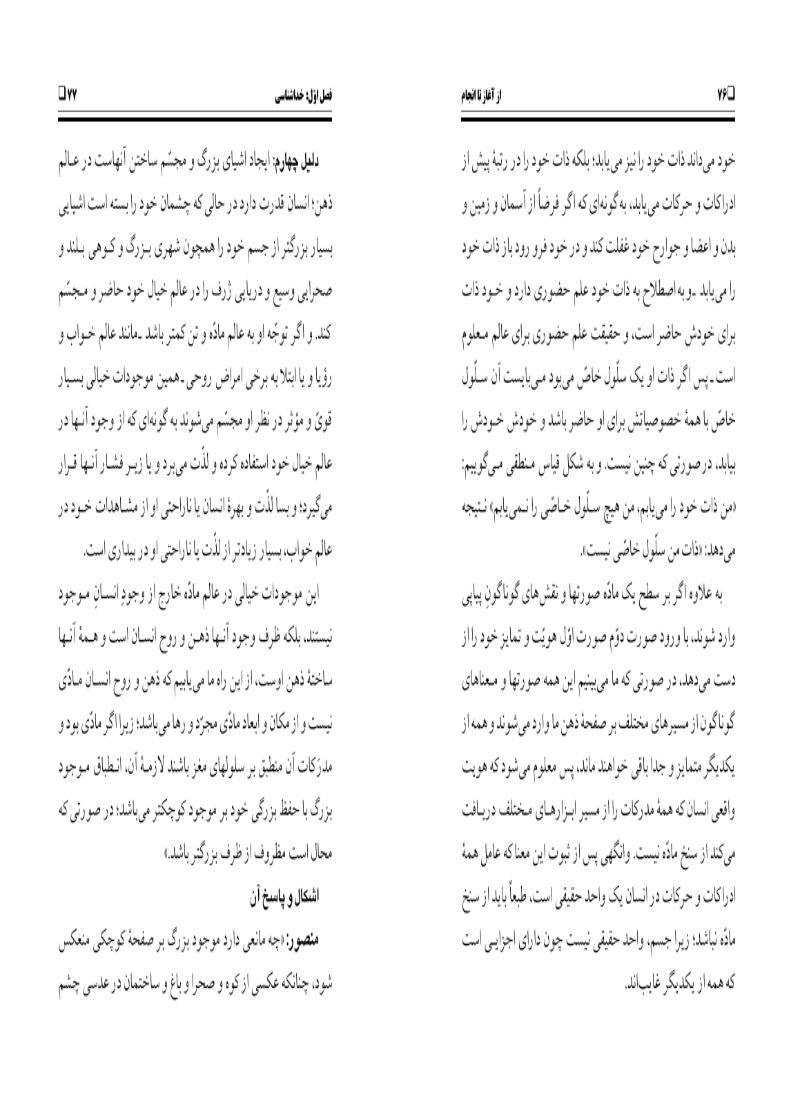 ❑۷۶
از آغاز تا انجام
خود می‌داند ذات خود را نیز می‌یابد؛ بلکه ذات خود را در رتبهٔ پیش از
ادراکات و حرکات می‌یابد، به‌گونه‌ای که اگر فرضاً از آسمان و زمین و
بدن و اعضا و جوارح خود غفلت کند و در خود فرو رود باز ذات خود
را می‌یابد ـ و به اصطلاح به ذات خود علم حضوری دارد و خـود ذات
برای خودش حاضر است، و حقیقت علم حضوری برای عالم مـعلوم
است ـ پس اگر ذات او یک سلّول خاصّ می‌بود مـی‌بایست آن سـلّول
خاصّ با همهٔ خصوصیاتش برای او حاضر باشد و خودش خـودش را
بیابد، در صورتی که چنین نیست. و به شکل قیاس مـنطقی مـی‌گوییم:
«من ذات خود را می‌یابم، من هیچ سـلّول خـاصّی را نـمی‌یابم» نـتیجه
می‌دهد: «ذات من سلّول خاصّی نیست».
به علاوه اگر بر سطح یک مادّه صورتها و نقش‌های گوناگونِ پیاپی
وارد شوند، با ورود صورت دوّم صورت اوّل هویّت و تمایز خود را از
دست می‌دهد، در صورتی که ما می‌بینیم این همه صورتها و مـعناهای
گوناگون از مسیرهای مختلف بر صفحهٔ ذهن ما وارد می‌شوند و همه از
یکدیگر متمایز و جدا باقی خواهند ماند، پس معلوم می‌شود که هویت
واقعی انسان که همهٔ مدرکات را از مسیر ابـزارهـای مـختلف دریـافت
می‌کند از سنخ مادّه نیست. وانگهی پس از ثبوت این معنا که عامل همهٔ
ادراکات و حرکات در انسان یک واحد حقیقی است، طبعاً باید از سنخ
مادّه نباشد؛ زیرا جسم، واحد حقیقی نیست چون دارای اجزایـی است
که همه از یکدیگر غایب‌اند.
فصل اوّل: خداشناسی
۷۷❑
دلیل چهارم: ایجاد اشیای بزرگ و مجسّم ساختن آنهاست در عـالم
ذهن؛ انسان قدرت دارد در حالی که چشمان خود را بسته است اشیایی
بسیار بزرگتر از جسم خود را همچون شهری بـزرگ و کـوهی بـلند و
صحرایی وسیع و دریایی ژرف را در عالم خیال خود حاضر و مـجسّم
کند. و اگر توجّه او به عالم مادّه و تن کمتر باشد ـ مانند عالم خـواب و
رؤیا و یا ابتلا به برخی امراض روحی ـ همین موجودات خیالی بسـیار
قویّ و مؤثر در نظر او مجسّم می‌شوند به گونه‌ای که از وجود آنـها در
عالم خیال خود استفاده کرده و لذّت می‌برد و یا زیـر فشـار آنـها قـرار
می‌گیرد؛ و بسا لذّت و بهرهٔ انسان یا ناراحتی او از مشـاهدات خـود در
عالم خواب، بسیار زیادتر از لذّت یا ناراحتی او در بیداری است.
این موجودات خیالی در عالم مادّه خارج از وجودِ انسـانِ مـوجود
نیستند، بلکه ظرف وجود آنـها ذهـن و روح انسـان است و هـمهٔ آنـها
ساختهٔ ذهن اوست، از این راه ما می‌یابیم که ذهن و روح انسـان مـادّی
نیست و از مکان و ابعاد مادّی مجرّد و رها می‌باشد؛ زیرا اگر مادّی بود و
مدرَکات آن منطبق بر سلولهای مغز باشند لازمـهٔ آن، انـطباق مـوجود
بزرگ با حفظ بزرگی خود بر موجود کوچکتر می‌باشد؛ در صورتی که
محال است مظروف از ظرف بزرگتر باشد.»
اشکال و پاسخ آن
منصور: «چه مانعی دارد موجود بزرگ بر صفحهٔ کوچکی منعکس
شود، چنانکه عکسی از کوه و صحرا و باغ و ساختمان در عدسی چشم